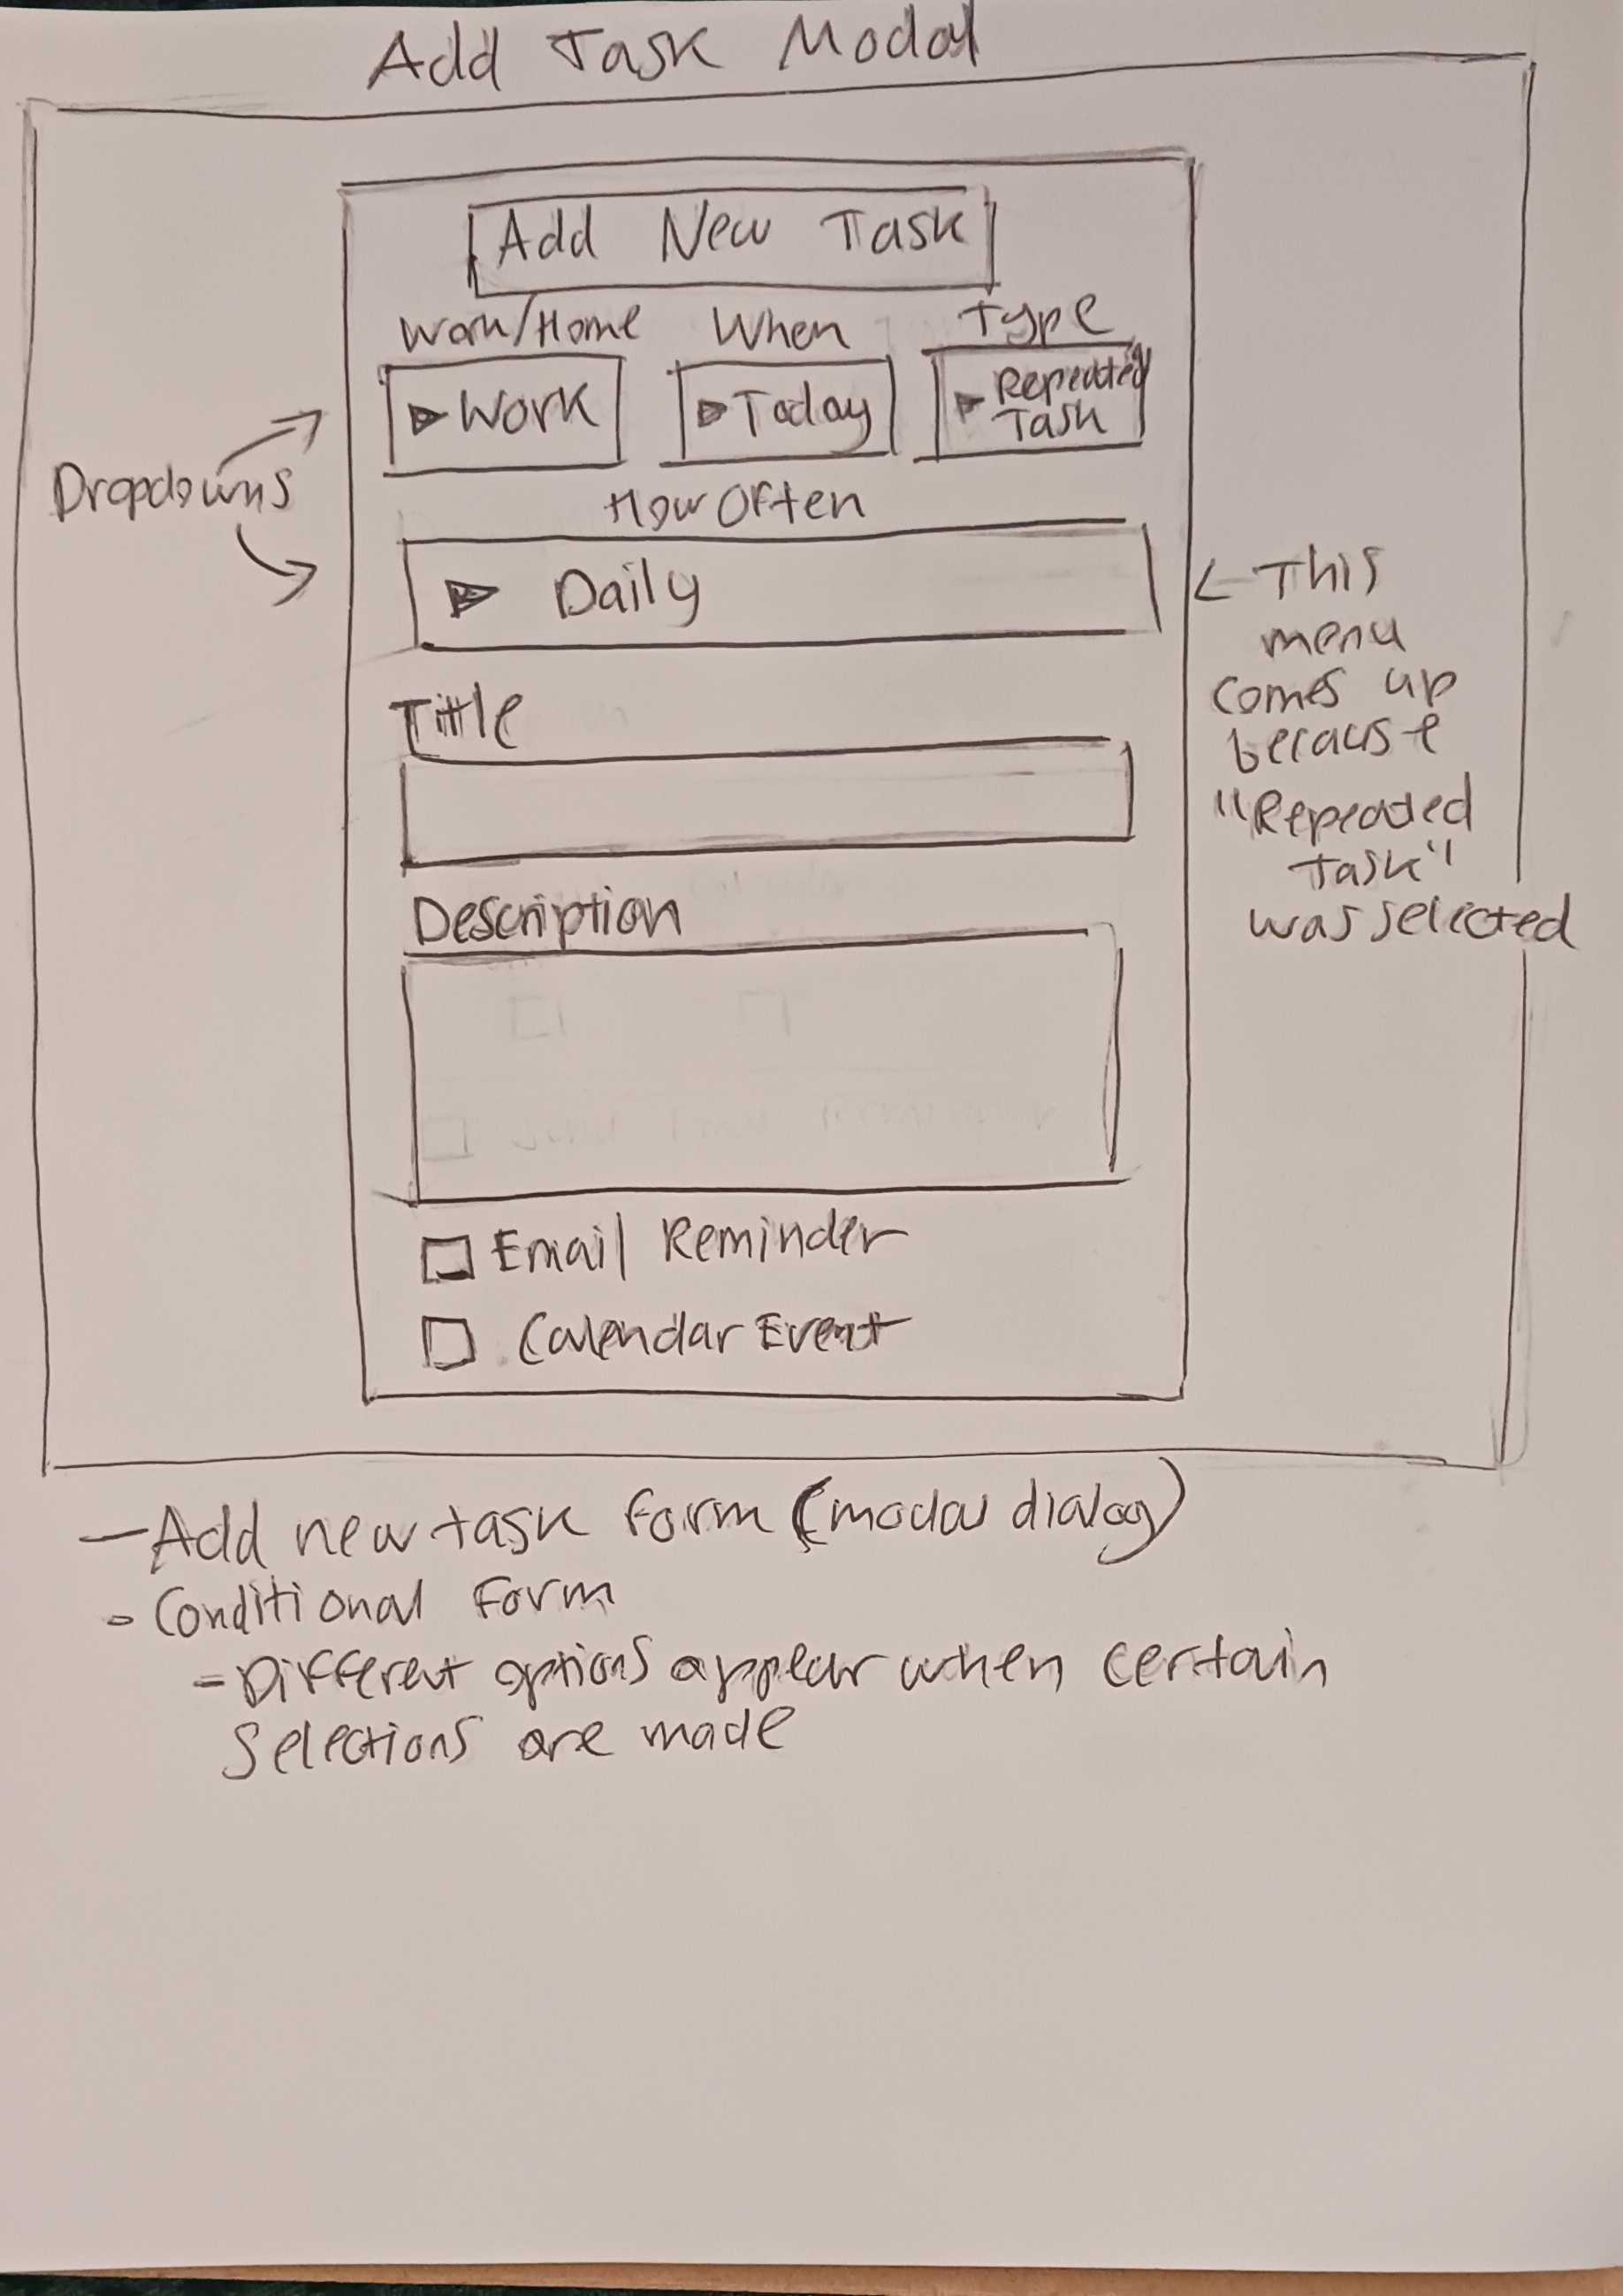 Add Task Modal
Add New Task
Work/Home When Type
Work Today Repeated
Task
Dropdowns
How Often
Daily
This
menu
comes up
because
"Repeated
Task"
was selected
Title
Description
Email Reminder
Calendar Event
- Add new task form (modal dialog)
- Conditional form
- Different options appear when certain
selections are made